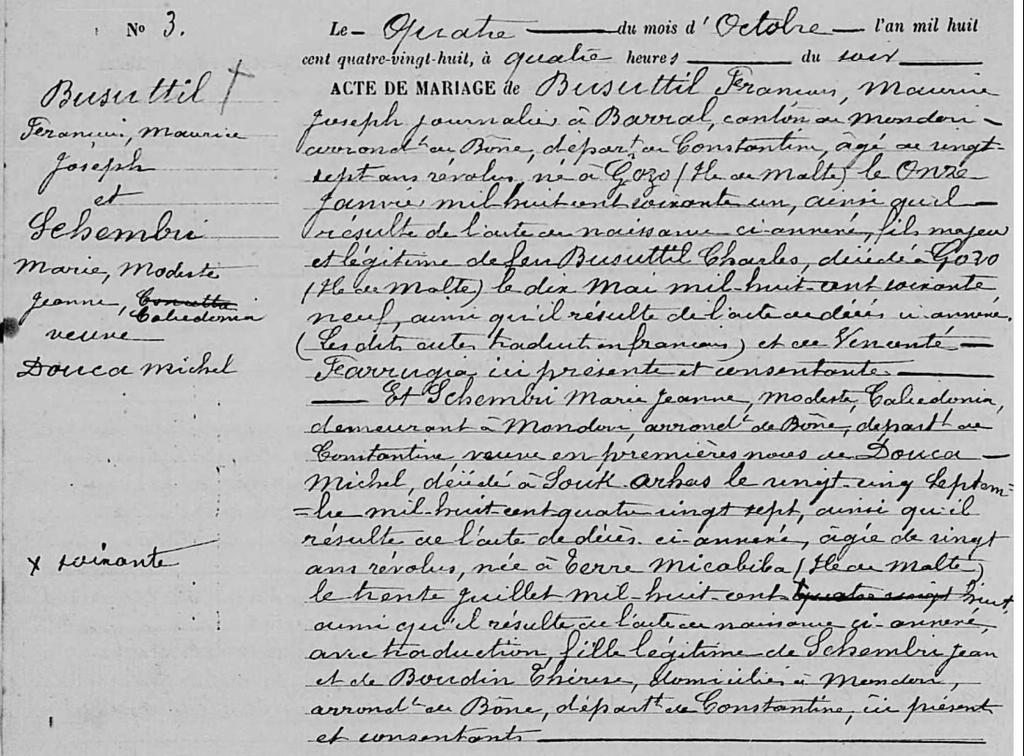 No 3.
Busuttil
François, Maurice
Joseph
et
Schembri
Marie, Modeste
Jeanne, Concetta
Calcedonia
veuve
Douca Michel
x soixante
Le Quatre du mois d'Octobre l'an mil huit
cent quatre-vingt-huit, à quatre heures du soir
ACTE DE MARIAGE de Busuttil François, Maurice
Joseph journalier à Barral, canton de Mondovi
arrondt de Bône, départt de Constantine, âgé de vingt-
sept ans révolus, né à Gozo (Ile de Malte) le Onze
Janvier mil huit cent soixante un, ainsi qu'il
résulte de l'acte de naissance ci-annexé, fils majeur
et légitime de feu Busuttil Charles, décédé à Gozo
(Ile de Malte) le dix Mai mil-huit-cent soixante
neuf, ainsi qu'il résulte de l'acte de décès ci-annexé.
(Les dits actes traduit en français) et de Vincente
Farrugia ici présente et consentante
Et Schembri Marie Jeanne, Modeste, Calcedonia,
demeurant à Mondovi, arrondt de Bône, départt de
Constantine, veuve en premières noces de Douca
Michel, décédé à Souk-arhas le vingt-cinq Septem-
=bre mil-huit-cent quatre vingt sept, ainsi qu'il
résulte de l'acte de décès ci-annexé, âgée de vingt
ans révolus, née à Terre Micabiba (Ile de Malte)
le trente Juillet mil-huit-cent x quatre vingt huit
ainsi qu'il résulte de l'acte de naissance ci-annexé,
avec traduction, fille légitime de Schembri Jean
et de Boudin Thérèse, domiciliés à Mondovi,
arrondt de Bône, départt de Constantine, ici présents
et consentants